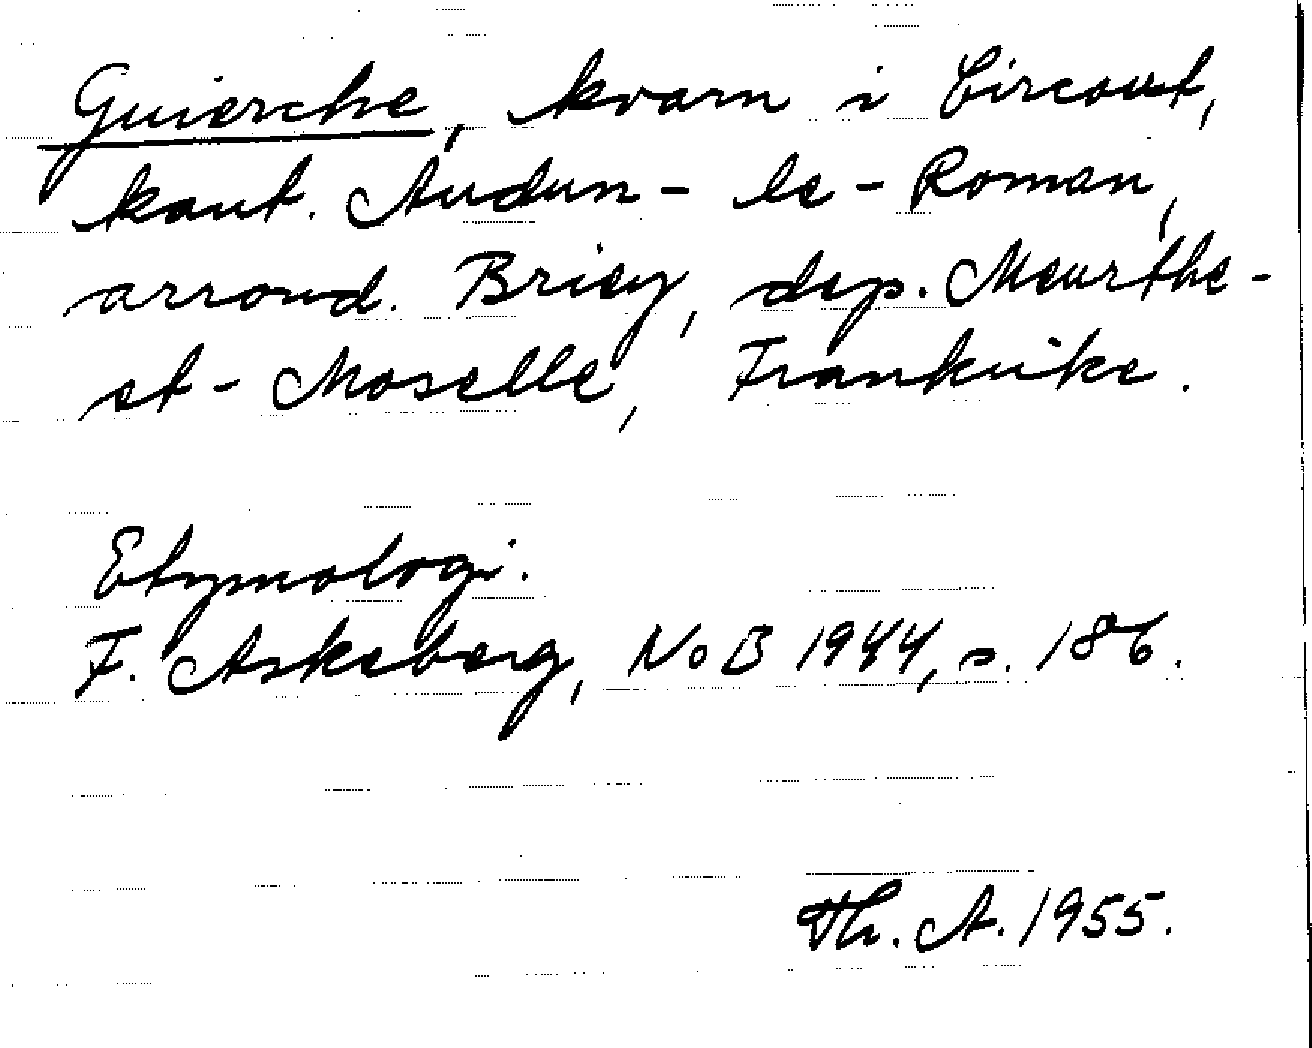 Guierche, kvarn i Circourt,
kant. Audun-le-Roman,
arrond. Briey, dep. Meurthe-
et-Moselle, Frankrike.
Etymologi.
F. Askeberg, NoB 1944, s. 186.
Th. A. 1955.